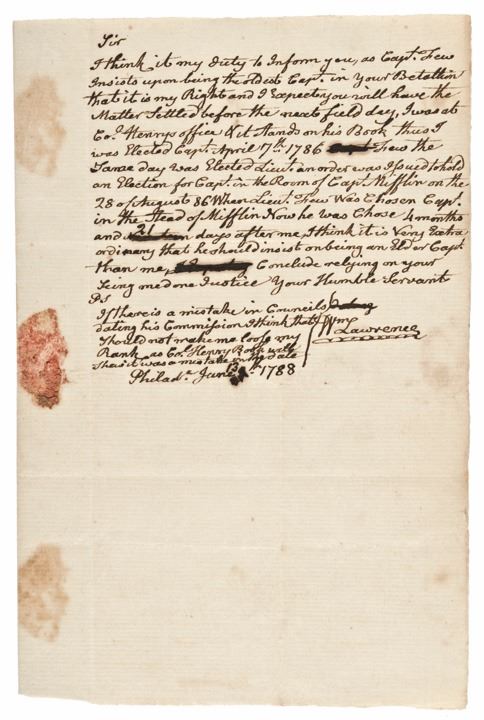 Sir
I think it my Duty to Inform you, as Capt. Few
Insists upon being the oldest Capt. in your Betallion
that it is my Right and I Expect you will have the
Matter Settled before the next field day, I was at
Col. Henrys office & it Stands on his Book thus I
was Elected Capt. April 7th. 1786 Few the
Same day was Elected Lieut. an order was Issued to hold
an Election for Capt. in the Room of Capt. Mifflin on the
28 of August 86 When Lieut. Few Was Chosen Capt.
in the Stead of Mifflin Now he was Chose 4 months
and 21 days after me, I think it is Very Extra
ordinary that he should insist on being an Elder Capt.
than me, Conclude relying on your
Seing me done Justice Your Humble Servant
PS
If there is a mistake in Councils
dating his Commission I think that
Should not make me loose my
Rank as Col. Henry Book will
Shew it was a mistake in the date
Wm Lawrence
Philada. June 13th. 1788